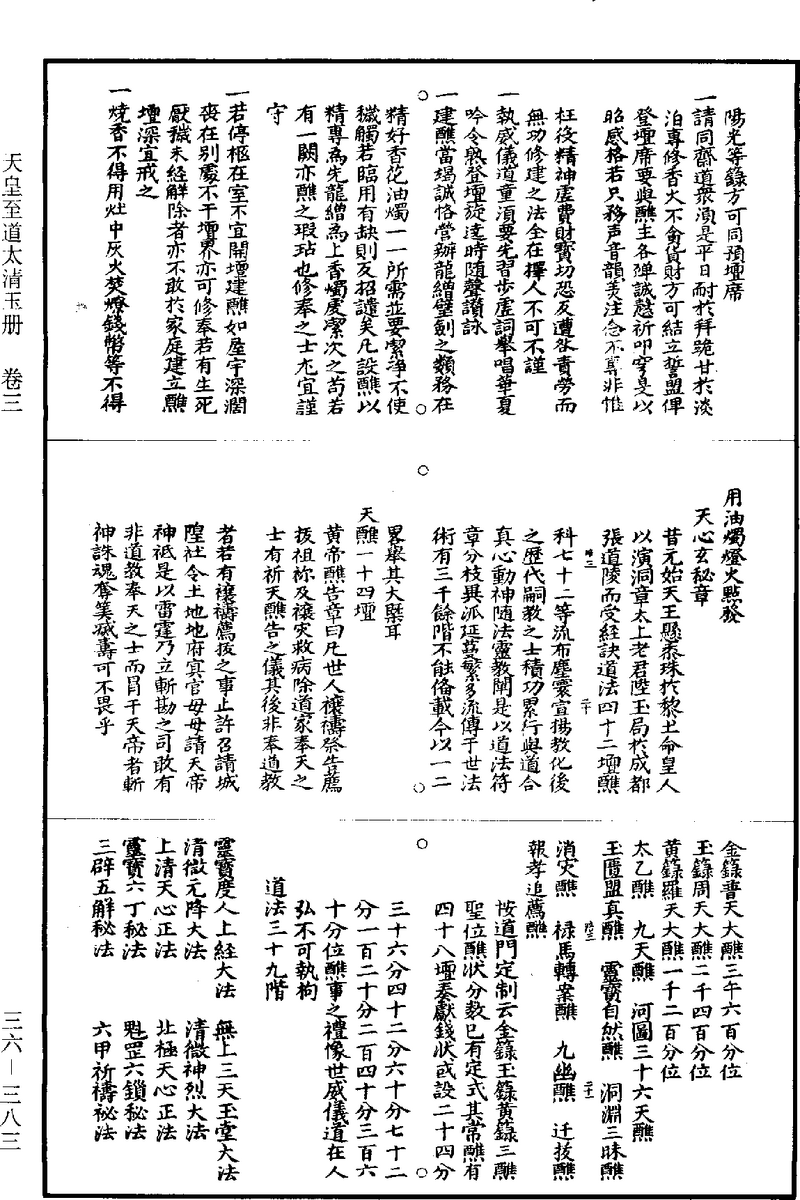 陽光等籙方可同預壇席
一請同齋道衆須是平日耐於拜跪甘於淡
泊專修香火不貪貨財方可結立誓盟俾
登壇席要與醮主各殫誠懇祈叩穹旻以
昭感格若只務声音韻美注念不專非惟
枉役精神虛費財寶切恐反遭咎責勞而
無功修建之法全在擇人不可不謹
一執威儀道童須要先習步虛詞舉唱華夏
吟令熟登壇旋遶時随聲讚詠
一建醮當竭誠恪營辦龍繒璧劍之類務在
精好香花油燭一一所需並要潔淨不使
穢觸若臨用有缺則反招譴矣凡設醮以
精專為先龍繒為上香燭處潔次之苟若
有一闕亦醮之瑕玷也修奉之士尤宜謹
守
一若停柩在室不宜開壇建醮如屋宇深濶
喪在别處不干壇界亦可修奉若有生死
厭穢未經解除者亦不敢於家庭建立醮
壇深宜戒之
一燒香不得用灶中灰火焚燎錢幣等不得
用油燭燈火點發
天心玄秘章
昔元始天王懸黍珠於黎土命皇人
以演洞章太上老君陞玉局於成都
張道陵而受經訣道法四十二壇醮
科七十二等流布塵寰宣揚教化後
之歷代嗣教之士積功累行與道合
真心動神随法靈教闡是以道法符
章分枝異派延蔓繁多流傳于世法
術有三千餘階不能俻載今以一二
畧舉其大槩耳
天醮一十四壇
黄帝醮告章曰凡世人禳禱祭告薦
拔祖祢及禳灾救病除道家奉天之
士有祈天醮告之儀其後非奉道教
者若有禳禱薦拔之事止許召請城
隍社令土地地府真官毋毋請天帝
神祇是以雷霆乃立斬勘之司敢有
非道教奉天之士而冐干天帝者斬
神誅魂奪筭减壽可不畏乎
金籙普天大醮三千六百分位
玉籙周天大醮二千四百分位
黄籙羅天大醮一千二百分位
太乙醮　九天醮　河圖三十六天醮
玉匱盟真醮　靈寶自然醮　洞淵三昧醮
消灾醮　禄馬轉案醮　九幽醮　迁拔醮
報孝追薦醮
按道門定制云金籙玉籙黄籙三醮
聖位醮状分数已有定式其常醮有
四十八壇奏獻錢状或設二十四分
三十六分四十二分六十分七十二
分一百二十分二百四十分三百六
十分位醮事之禮像世威儀道在人
弘不可執拘
道法三十九階
靈寶度人上經大法　無上三天玉堂大法
清微元降大法　清微神烈大法
上清天心正法　北極天心正法
靈寶六丁秘法　魁罡六鎖秘法
三辟五解秘法　六甲祈禱秘法
天皇至道太清玉册　卷三
三六—三八三